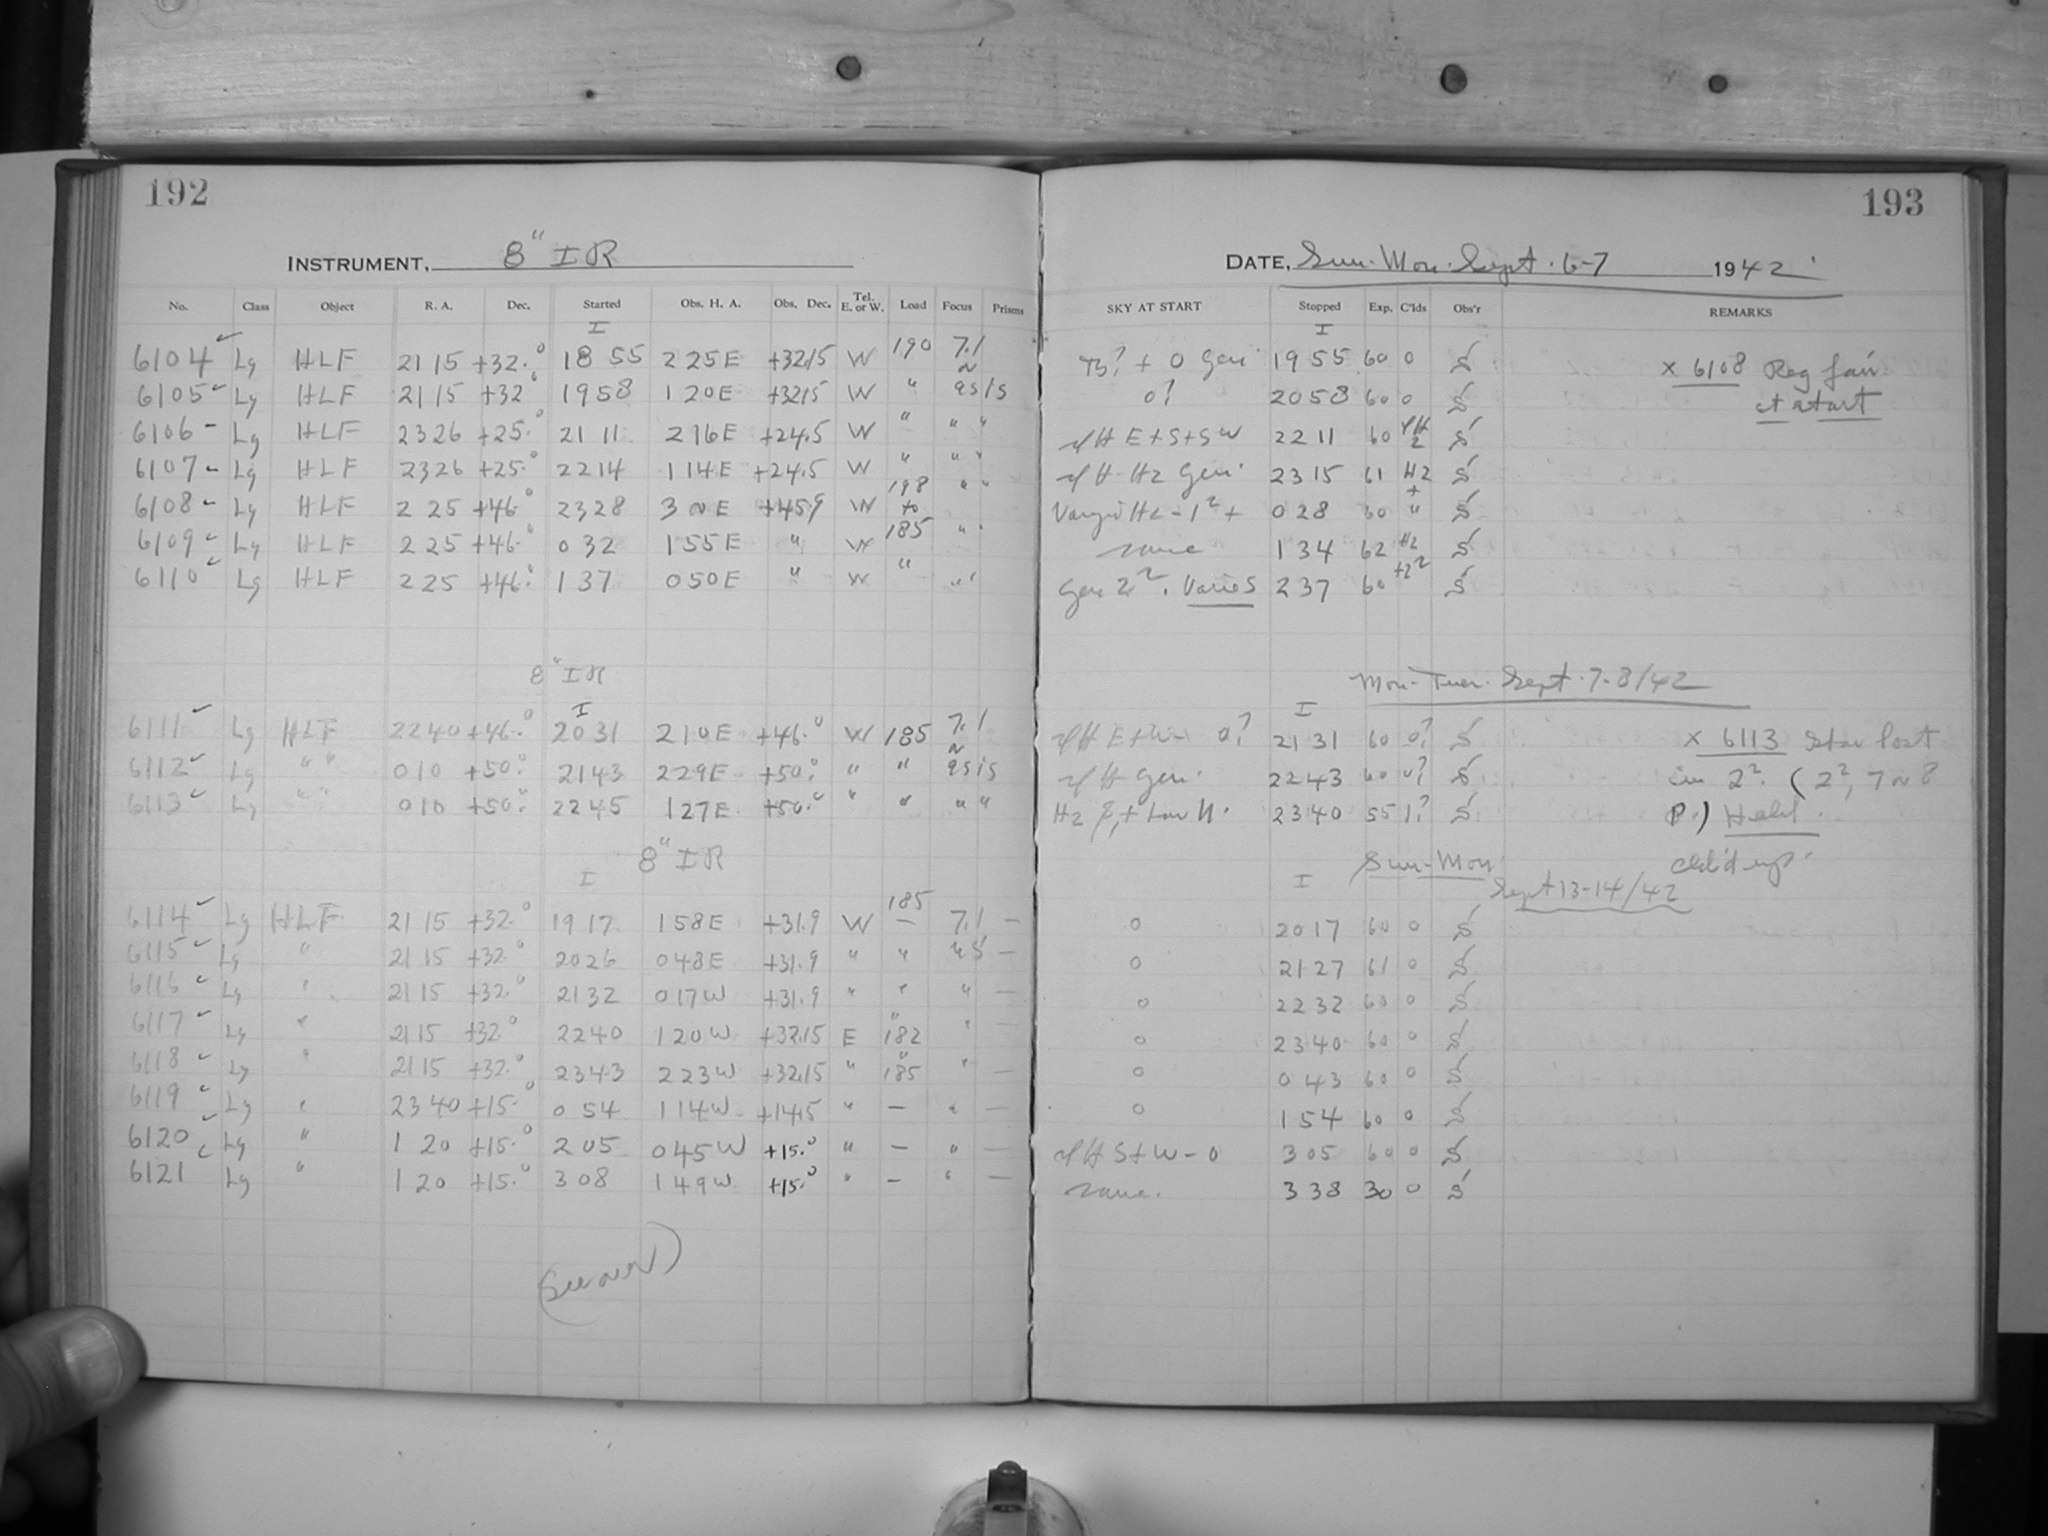 192
193
INSTRUMENT, 8" I R
DATE, Sun. Mon. Sept. 6-7 1942
No. Class Object R. A. Dec. Started Obs. H. A. Obs. Dec. Tel. E. or W. Load Focus Prisms SKY AT START Stopped Exp. C'lds Obs'r REMARKS
I I
6104 Lg HLF 21 15 +32.° 18 55 2 25 E +32.15 W 190 7.1 + 0 Gen 19 55 60 0 S x 6108 Reg fair
6105 Lg HLF 21 15 +32° 19 58 1 20 E +32.15 W " as is 0? 20 58 60 0 S at start
6106 Lg HLF 23 26 +25.° 21 11 2 16 E +24.5 W " " " E+S+SW 22 11 60 2 S
6107 Lg HLF 23 26 +25.° 22 14 1 14 E +24.5 W " " " H2 Gen. 23 15 61 H2 S
6108 Lg HLF 2 25 +46° 23 28 E +45.9 W 198 to " " + 0 28 60 " S
6109 Lg HLF 2 25 +46.° 0 32 1 55 E " W 185 " " same 1 34 62 H2 S
6110 Lg HLF 2 25 +46.° 1 37 0 50 E " W " " " Gen 2². Varies 2 37 60 +2² S
8" I R
Mon-Tues. Sept. 7-8/42
I I
6111 Lg HLF 22 40 +46.° 20 31 2 10 E +46.° W 185 7.1 0? 21 31 60 0? S x 6113 Star lost
6112 Lg " " 0 10 +50.° 21 43 2 29 E +50.° " " as is Gen. 22 43 60 0? S in 2². (2²,
6113 Lg " " 0 10 +50.° 22 45 1 27 E +50.° " " " " H2 + Low N. 23 40 55 1? S P.) Held.
8" I R
Sun-Mon
Cld'd up.
I I
Sept 13-14/42
6114 Lg HLF 21 15 +32.° 19 17 1 58 E +31.9 W 185 — 7.1 — 0 20 17 60 0 S
6115 Lg " 21 15 +32.° 20 26 0 48 E +31.9 " " — 0 21 27 61 0 S
6116 Lg " 21 15 +32.° 21 32 0 17 W +31.9 " " " — 0 22 32 60 0 S
6117 Lg " 21 15 +32° 22 40 1 20 W +32.15 E 182 " — 0 23 40 60 0 S
6118 Lg " 21 15 +32.° 23 43 2 23 W +32.15 " 185 " — 0 0 43 60 0 S
6119 Lg " 23 40 +15.° 0 54 1 14 W +14.5 " — " — 0 1 54 60 0 S
6120 Lg " 1 20 +15.° 2 05 0 45 W +15.° " — " — S+W-0 3 05 60 0 S
6121 Lg " 1 20 +15.° 3 08 1 49 W +15.° " — " — same. 3 38 30 0 S
(See over)